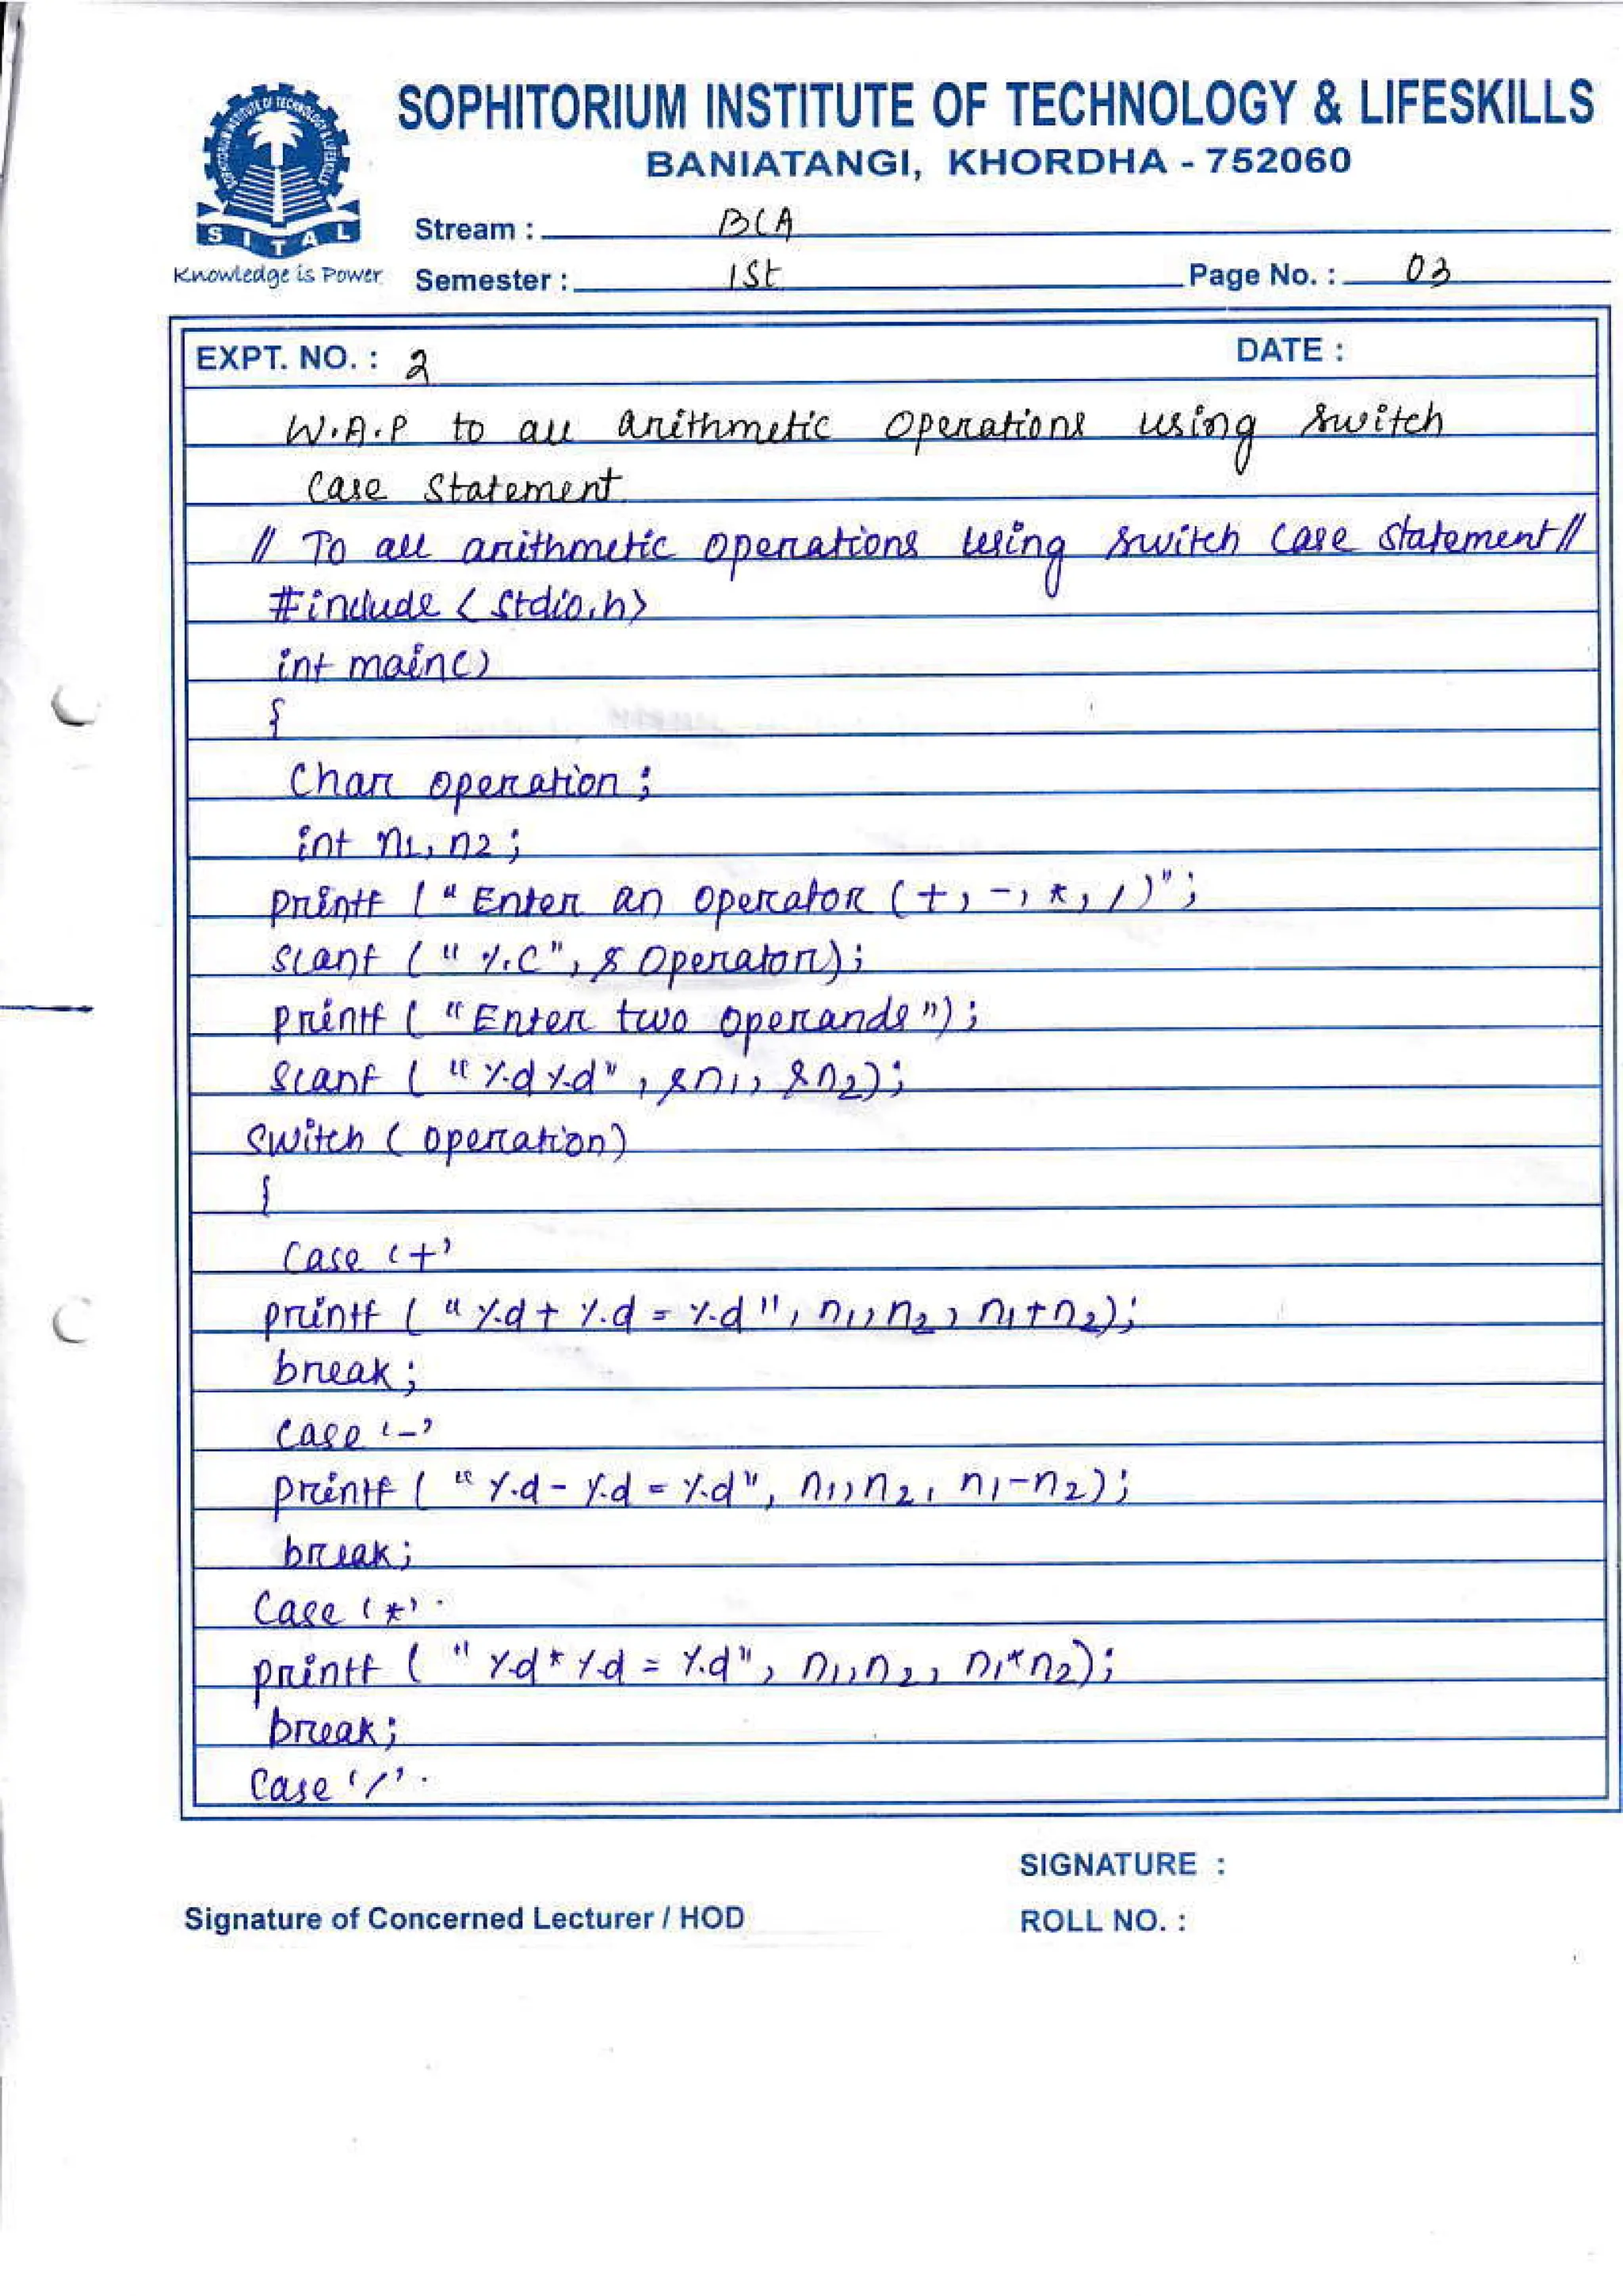 SOPHITORIUM INSTITUTE OF TECHNOLOGY & LIFESKILLS
BANIATANGI, KHORDHA - 752060
SITAL
Knowledge is Power
Stream : BCA
Semester : 1St Page No. : 03
EXPT. NO. : 2 DATE :
W.A.P to all arithmetic Operations using Switch
Case Statement
// To all arithmetic operations using switch case statement//
#include <stdio.h>
int main()
{
Char operation;
int n1, n2;
printf ("Enter an operator (+, -, *, /)";
scanf ("%c", & Operator);
printf ("Enter two operands");
scanf ("%d%d", &n1, &n2);
Switch (operation)
{
Case '+'
printf ("%d + %d = %d", n1, n2, n1+n2);
break;
Case '-'
printf ("%d - %d = %d", n1, n2, n1-n2);
break;
Case '*'.
printf ("%d * %d = %d", n1, n2, n1*n2);
break;
Case '/'.
SIGNATURE :
Signature of Concerned Lecturer / HOD ROLL NO. :